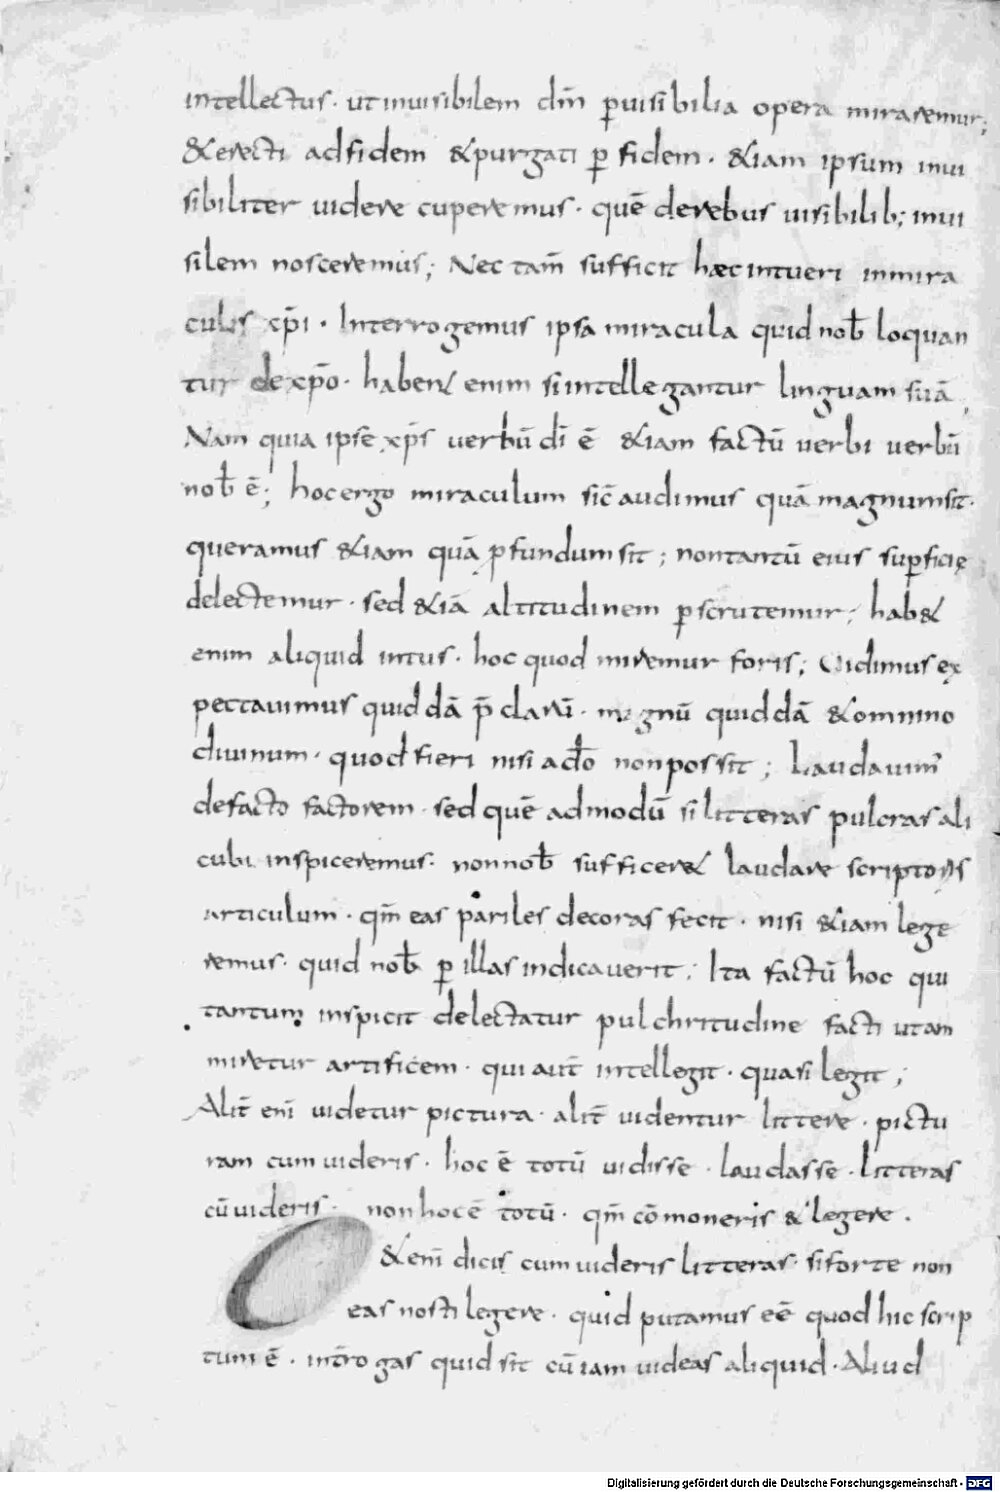 intellectus · ut inuisibilem dm̄ ꝑuisibilia opera miraremur;
&erecti adfidem &purgati ꝑ fidem · &iam ipsum inui
sibiliter uidere cuperemus · quē derebus uisibilib; inui
silem nosceremus; Nec tam̄ sufficit hæc intueri inmira
culis xp̄i · Interrogemus ipsa miracula quid nob̄ loquan
tur dexp̄o · haben& enim siintellegantur linguam suā
Nam quia ipse xp̄s uerbū dī ē &iam factū uerbi uerbū
nob̄ ē; hoc ergo miraculum sic̄ audimus quā magnumsit ·
queramus &iam quā ꝓfundum sit; nontantū eius suꝑficię
delectemur · sed &iā altitudinem ꝑscrutemur; hab&
enim aliquid intus · hoc quod miremur foris; Uidimus ex
pectauimus quiddā p̄clarū · magnū quiddā &omnino
diuinum · quod fieri nisi ado̅ nonpossit; Laudauim᾽
defacto factorem · sed quē admodū si litteras pulcras ali
cubi inspiceremus · nonnob̄ sufficere& laudare scriptoris
articulum · qm̄ eas pariles decoras fecit · nisi &iam lege
remus · quid nob̄ ꝑ illas indicauerit; Ita factū hoc qui
tantum inspicit delectatur pulchritudine facti utam
miretur artificem · qui aut̄ intellegit · quasi legit;
Alit̄ enī uidetur pictura · alit̄ uidentur littere · pictu
ram cum uideris · hoc ē totū uidisse · laudasse · litteras
cū uideris · non hoc ē totū · qm̄ cōmoneris & legere ·
O &enī dicis cum uideris litteras · siforte non
eas nosti legere · quid putamus eē quod hic scrip
tum ē · intr̄ogas quid sit cū iam uideas aliquid · Aliud
Digitalisierung gefördert durch die Deutsche Forschungsgemeinschaft - DFG